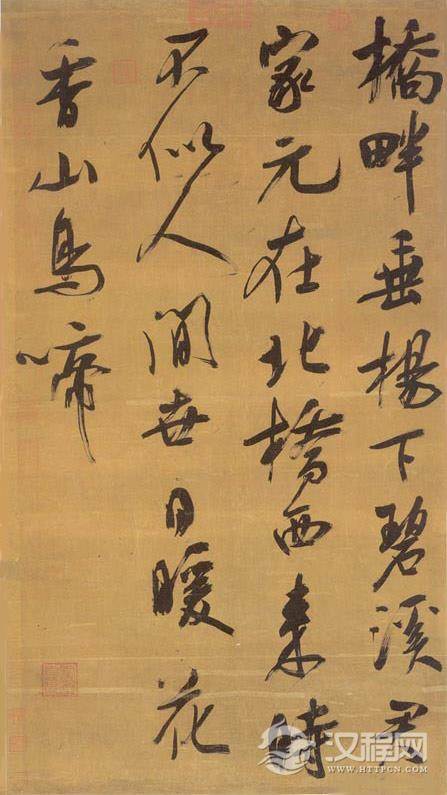 橋畔垂楊下碧溪君
家元在北橋西来時
不似人間世日暖花
香山鳥啼
汉程网
WWW.HTTPCN.COM